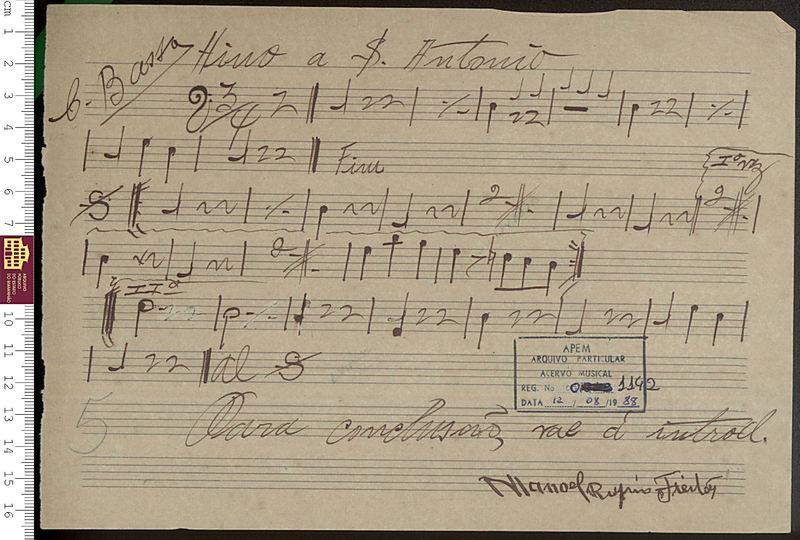 Hino a S. Antonio
C. Basso
3/4
2
Fim
Iª vez
2
2
II ª
al
APEM
ARQUIVO PARTICULAR
ACERVO MUSICAL
REG. No 1142
DATA 12 / 08 /19 88
5
Para conclusão, vae á introd.
Manoel Rufino Freitas
cm
1
2
3
4
5
6
7
10
11
12
13
14
15
16
ARQUIVO
PÚBLICO
DO ESTADO
DO MARANHÃO